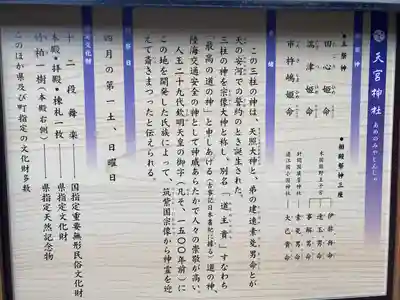 天宮神社
あめのみやじんじゃ
祭神
●主祭神
田心姫命
湍津姫命
市杵嶋姫命
●相殿祭神三座
この三柱の神は、天照大神と、弟の建速素戔男命とが
天の安河での誓約のとき誕生された。
三柱の神を宗像大神と称し、別名「道主貴」すなわち
「最高の道の神」と申しあげる(古事記日本書紀に拠る)道の神、
陸海交通安全の神として神威あらたかで人々の崇敬が高い。
人王二十九代欽明天皇の御宇(凡そ、一五〇〇年前)に
この地を開発した氏族によって、筑紫国宗像から神霊を迎
えて斎きまつったと伝えられる。
祭日
四月の第一土、日曜日
文化財
十二段舞楽――国指定重要無形民俗文化財
本殿・拝殿・棟札一枚――県指定文化財
竹柏一樹(本殿右側)――県指定天然記念物
このほか県及び町指定の文化財多数